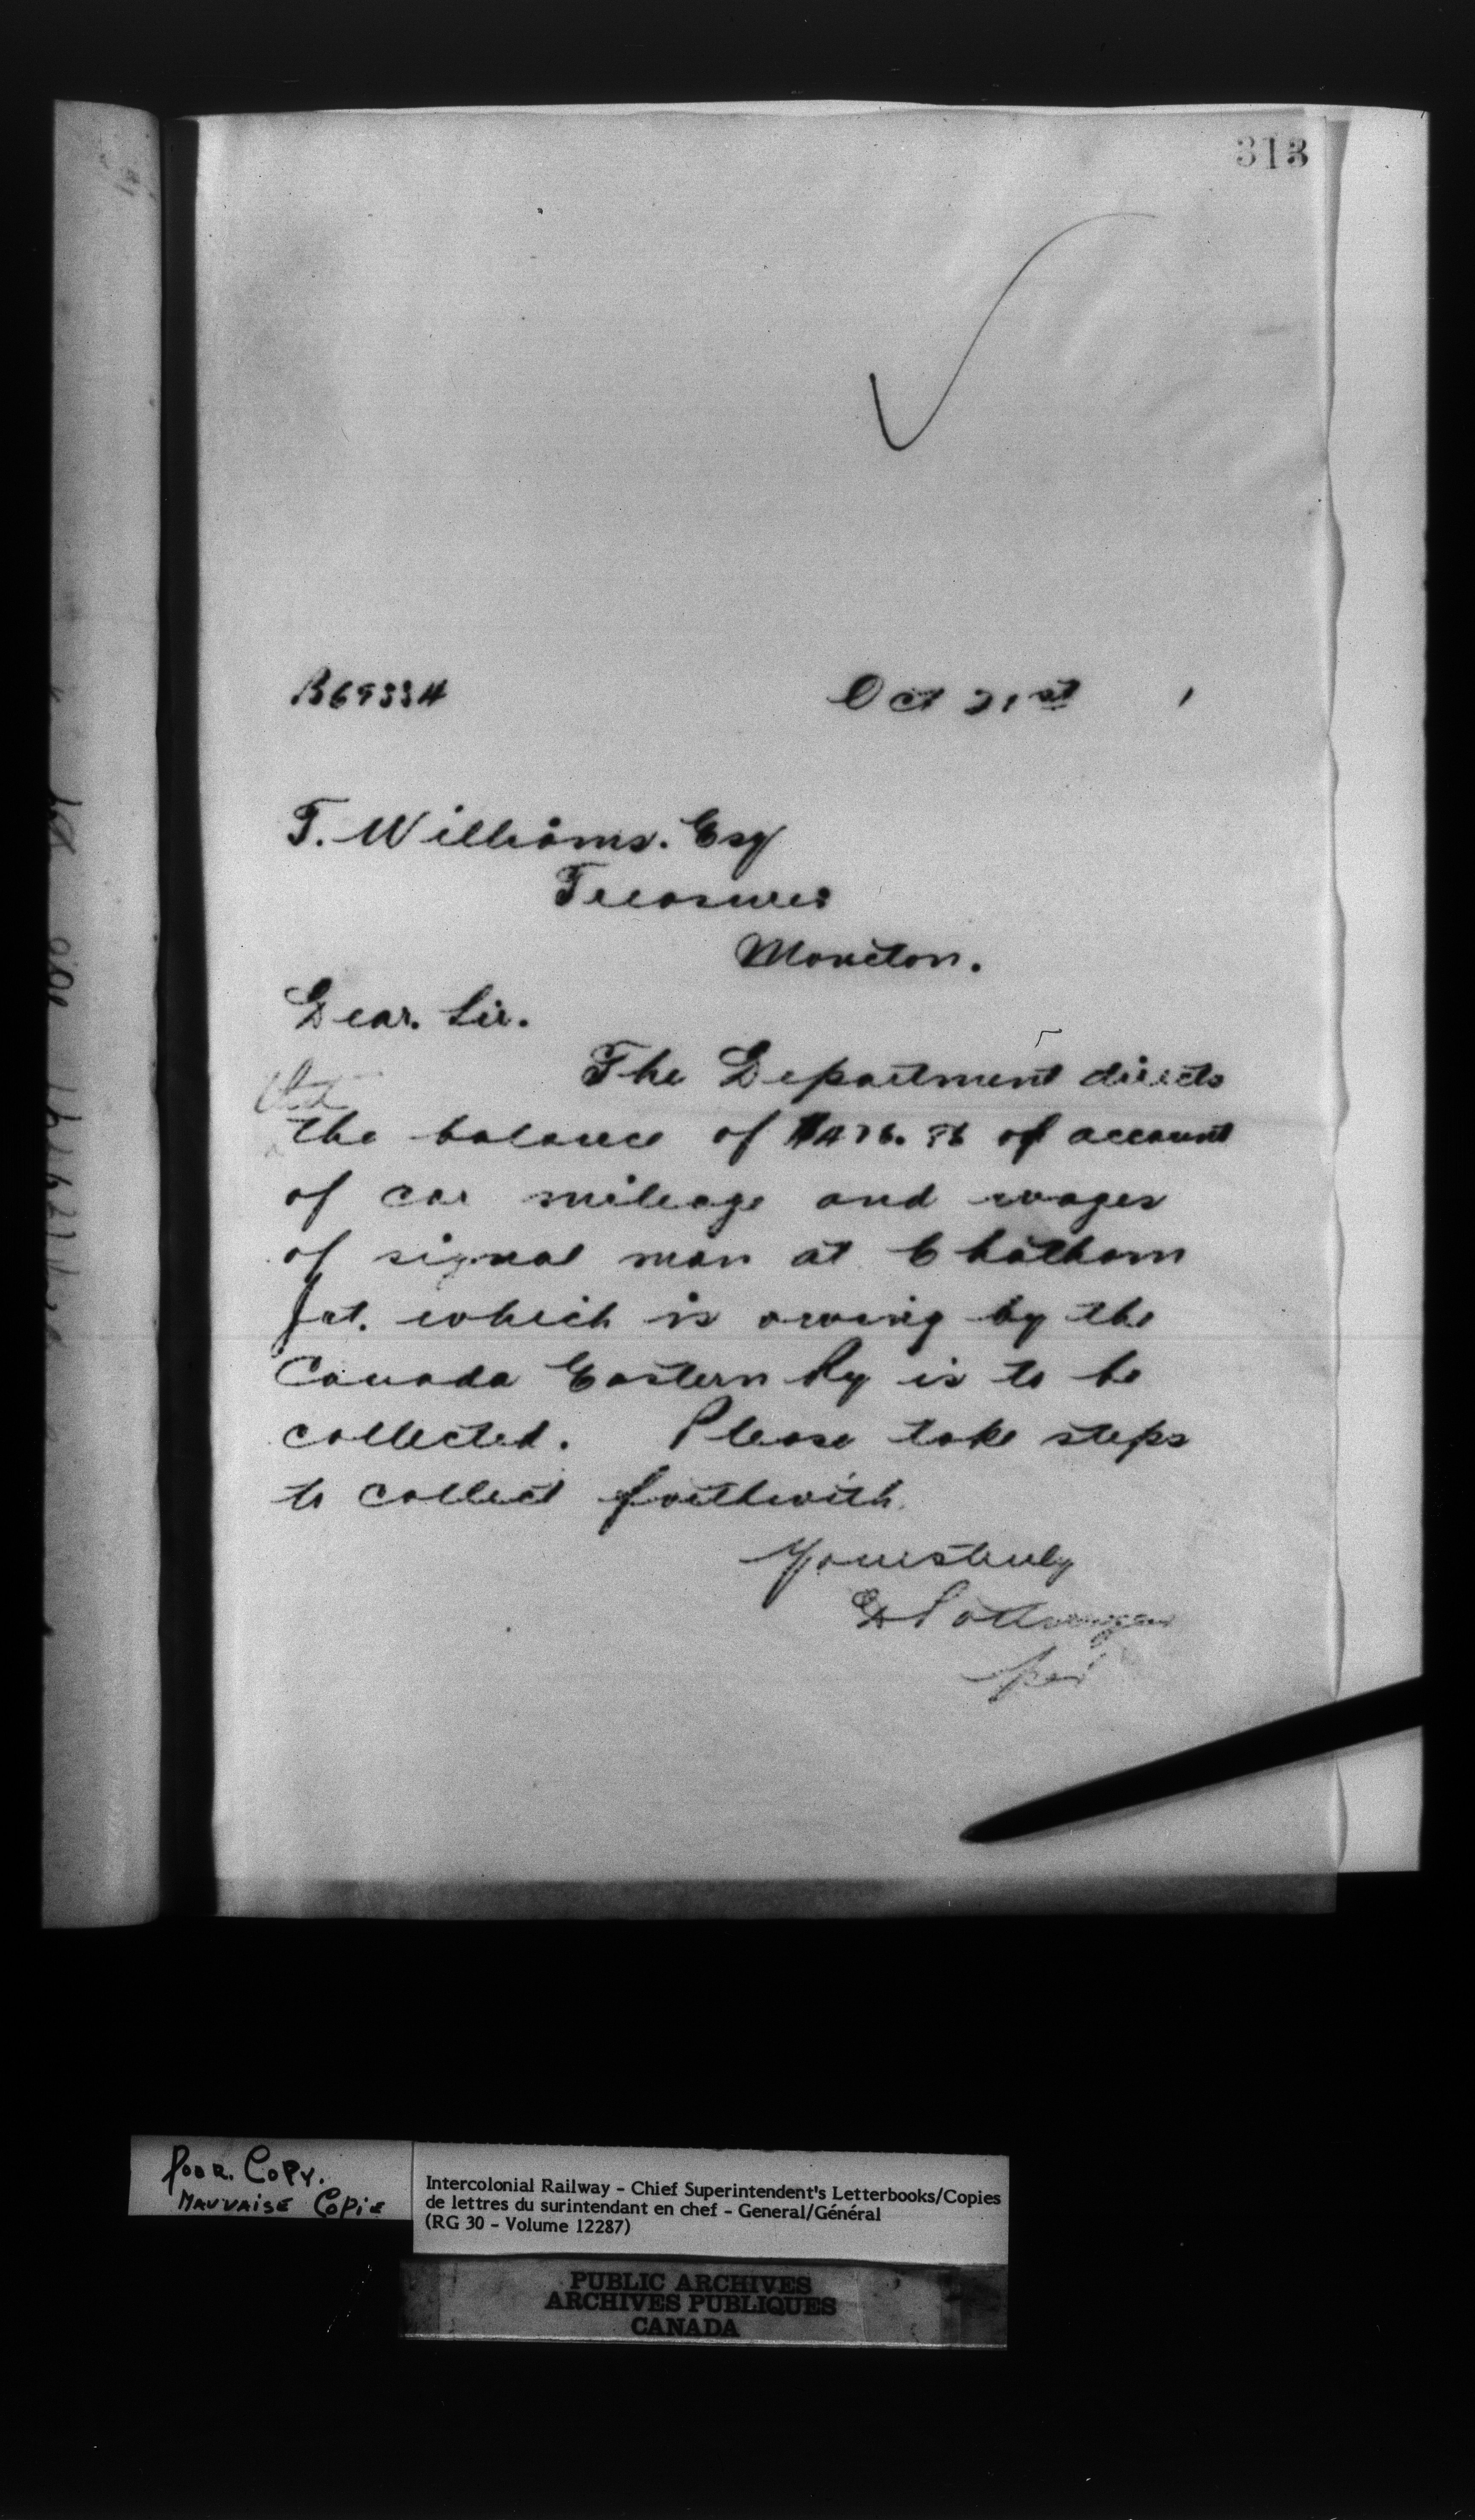 313
B69334
Oct 21st 1
T. Williams. Esq
Treasurer
Moncton.
Dear. Sir.
The Department directs
that
the balance of of account
of car mileage and wages
of signal man at Chatham
Jct. which is owing by the
Canada Eastern Ry is to be
collected. Please take steps
to collect forthwith.
Yours truly
D Pottinger
per
Poor. Copy.
Mauvaise Copie
Intercolonial Railway - Chief Superintendent's Letterbooks/Copies
de lettres du surintendant en chef - General/Général
(RG 30 - Volume 12287)
PUBLIC ARCHIVES
ARCHIVES PUBLIQUES
CANADA